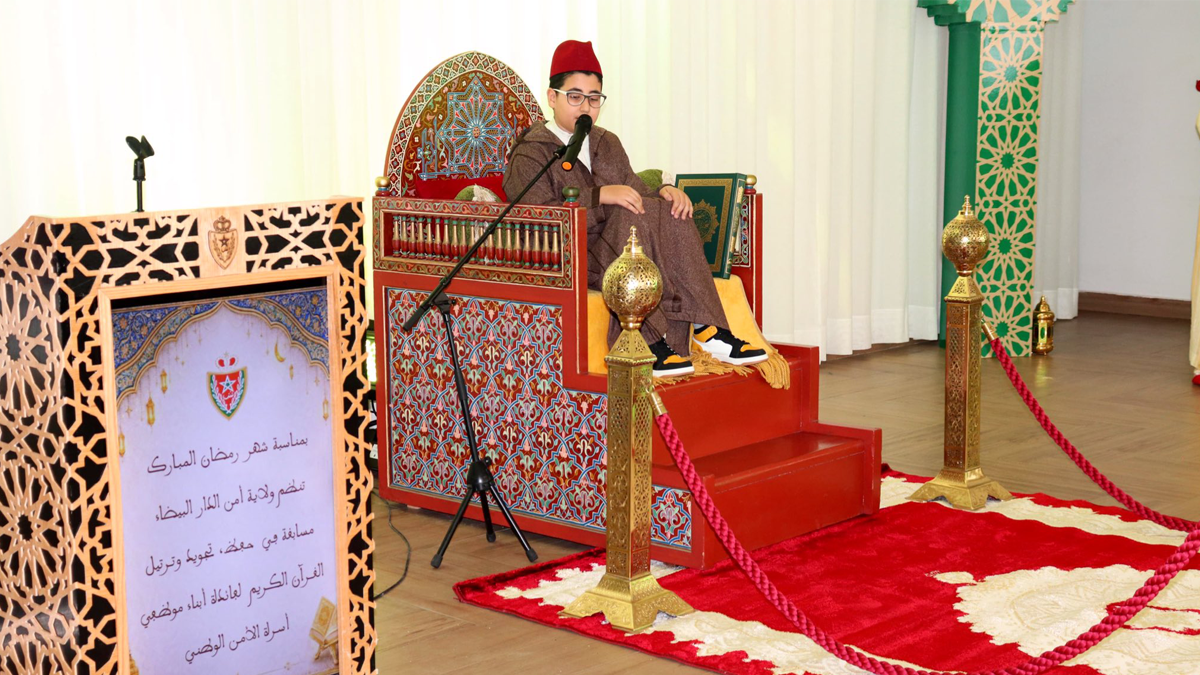 بمناسبة شهر رمضان المبارك
تنظم ولاية أمن الدار البيضاء
مسابقة في حفظ، تجويد وترتيل
القرآن الكريم لفائدة أبناء موظفي
أسرة الأمن الوطني